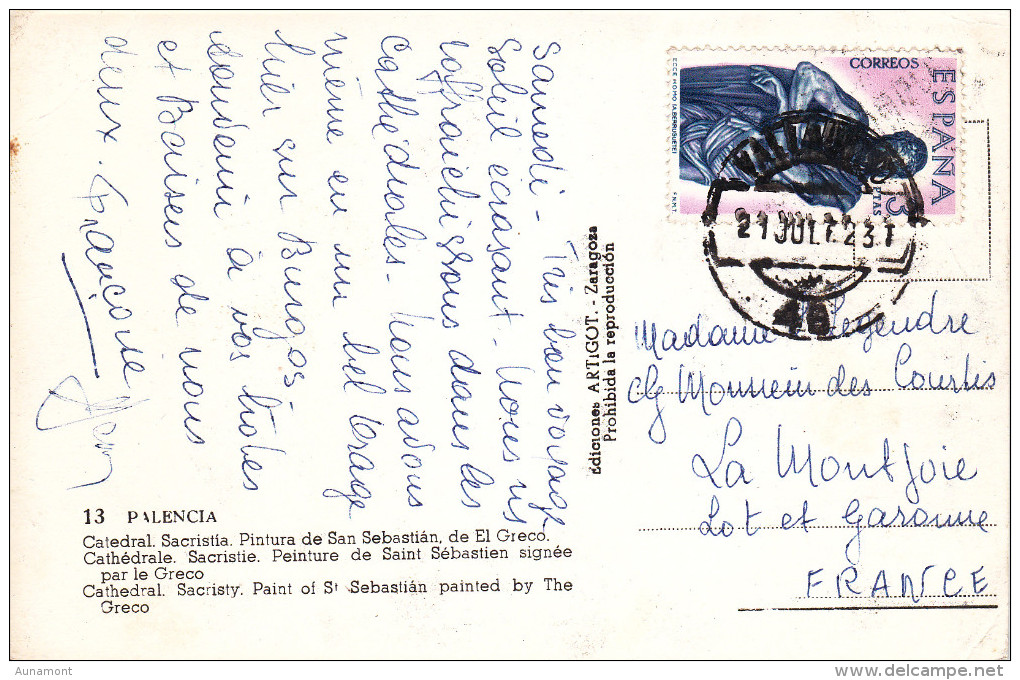 Samedi - Très beau voyage
soleil écrasant. Nous ns
raffraichissons dans les
cathédrales - Nous avons
même eu un bel orage
hier sur Burgos
à vos hôtes
et Baisers de nous
deux. Françoise
13 PALENCIA
Catedral. Sacristía. Pintura de San Sebastián, de El Greco.
Cathédrale. Sacristie. Peinture de Saint Sébastien signée
par le Greco
Cathedral. Sacristy. Paint of St Sebastián painted by The
Greco
Ediciones ARTIGOT. - Zaragoza
Prohibida la reproducción
CORREOS
ESPAÑA
3 PTAS
ECCE HOMO (A. BERRUGUETE)
F.N.M.T.
21 JUL
46
Madame Legendre
La Montjoie
Lot et Garonne
FRANCE
Aunamont
delcampe.net